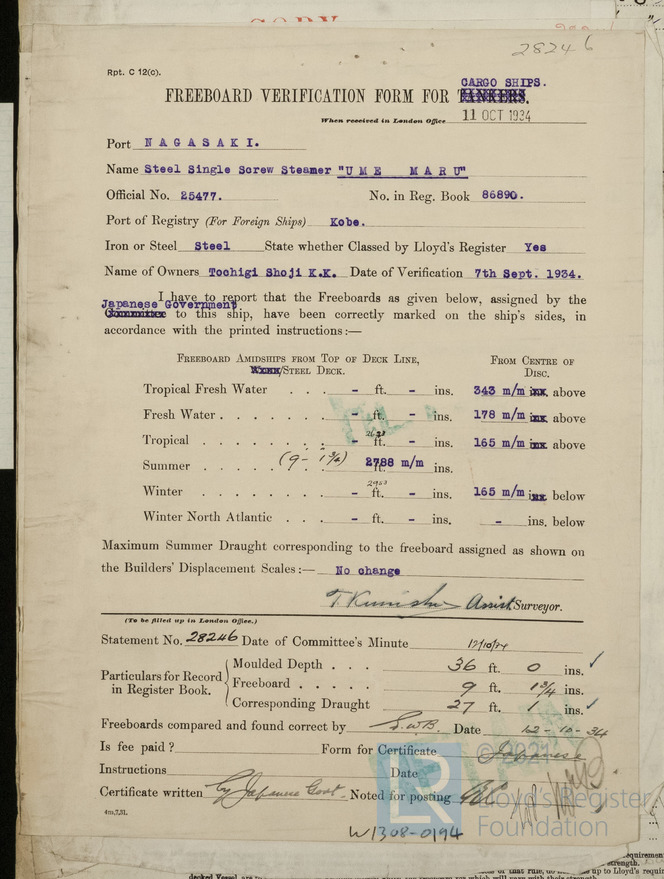 COPY
28246
Rpt. C 12(c).
CARGO SHIPS.
FREEBOARD VERIFICATION FORM FOR TANKERS.
When received in London Office 11 OCT 1934
Port NAGASAKI.
Name Steel Single Screw Steamer "UME MARU"
Official No. 25477. No. in Reg. Book 86890.
Port of Registry (For Foreign Ships) Kobe.
Iron or Steel Steel State whether Classed by Lloyd's Register Yes
Name of Owners Tochigi Shoji K.K. Date of Verification 7th Sept. 1934.
I have to report that the Freeboards as given below, assigned by the
Japanese Government
Committee to this ship, have been correctly marked on the ship's sides, in
accordance with the printed instructions:—
FREEBOARD AMIDSHIPS FROM TOP OF DECK LINE, FROM CENTRE OF
/STEEL DECK. DISC.
Tropical Fresh Water . . . - ft. - ins. 343 m/m ins. above
Fresh Water . . . . . . . - ft. - ins. 178 m/m ins. above
Tropical . . . . . . . . - ft. - ins. 165 m/m ins. above
Summer . . . . . (9 - 1 3/4) 2788 m/m ft. ins.
2953
Winter . . . . . . . . - ft. - ins. 165 m/m ins. below
Winter North Atlantic . . . - ft. - ins. - ins. below
Maximum Summer Draught corresponding to the freeboard assigned as shown on
the Builders' Displacement Scales:— No change
Assist. Surveyor.
(To be filled up in London Office.)
Statement No. 28246 Date of Committee's Minute 12/10/34
Particulars for Record in Register Book.
Moulded Depth . . . 36 ft. 0 ins. ✓
Freeboard . . . . . 9 ft. 1 3/4 ins.
Corresponding Draught 27 ft. 1 ins. ✓
Freeboards compared and found correct by S.W.B. Date 12-10-34
Is fee paid? Form for Certificate Japanese
Instructions Date
Certificate written by Japanese Govt. Noted for posting
4m,7,31.
W1308-0194
© 2021
LR
Lloyd's Register
Foundation